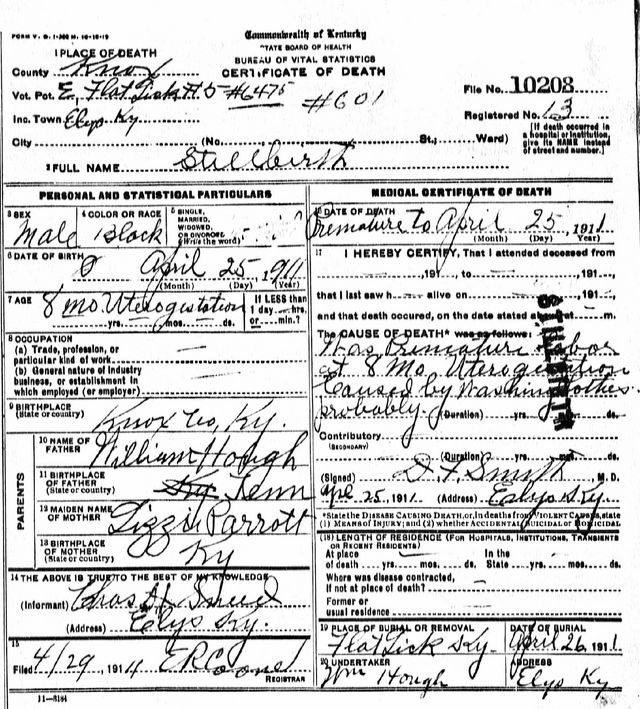 FORM V. S. 1-300 M. 10-10-10
Commonwealth of Kentucky
STATE BOARD OF HEALTH
BUREAU OF VITAL STATISTICS
CERTIFICATE OF DEATH
1 PLACE OF DEATH
County Knox
Vot. Pct. E. Flat Lick # 5 #6475
#601
File No. 10203
Inc. Town Elys Ky
Registered No. 13
City (No. St.; Ward)
[If death occurred in a hospital or institution, give its NAME instead of street and number.]
2 FULL NAME Stillbirth
PERSONAL AND STATISTICAL PARTICULARS
3 SEX Male
4 COLOR OR RACE Black
5 SINGLE, MARRIED, WIDOWED, OR DIVORCED (Write the word)
6 DATE OF BIRTH April 25, 1911
(Month) (Day) (Year)
7 AGE 8 mo. Uterogestation
yrs. mos. ds.
If LESS than 1 day hrs. or min.?
8 OCCUPATION
(a) Trade, profession, or particular kind of work
(b) General nature of industry business, or establishment in which employed (or employer)
9 BIRTHPLACE (State or country) Knox Co, Ky.
PARENTS
10 NAME OF FATHER William Hough
11 BIRTHPLACE OF FATHER (State or country) Ky Tenn
12 MAIDEN NAME OF MOTHER Lizzie Parrott
13 BIRTHPLACE OF MOTHER (State or country) Ky
14 THE ABOVE IS TRUE TO THE BEST OF MY KNOWLEDGE
(Informant) Chas H. Sneed
(Address) Elys Ky.
15
Filed 4/29 1911
REGISTRAR
11-3184
MEDICAL CERTIFICATE OF DEATH
16 DATE OF DEATH Premature to April 25, 1911
(Month) (Day) (Year)
17 I HEREBY CERTIFY, That I attended deceased from
191 to 191
that I last saw h alive on 191
and that death occurred, on the date stated at m.
The CAUSE OF DEATH* was as follows:
Was Premature labor
at 8 Mo. Uterogestation
Caused by Washing Clothes
probably. (Duration) yrs. mos. ds.
STILLBIRTH
Contributory
(SECONDARY)
(Duration) yrs. mos. ds.
(Signed) D. F. Smith M. D.
Apr. 25, 1911. (Address) Elys Ky.
*State the DISEASE CAUSING DEATH, or, in deaths from VIOLENT CAUSES, state (1) MEANS OF INJURY; and (2) whether ACCIDENTAL SUICIDAL or HOMICIDAL
(18) LENGTH OF RESIDENCE (FOR HOSPITALS, INSTITUTIONS, TRANSIENTS OR RECENT RESIDENTS)
At place of death yrs. mos. ds. In the State yrs. mos. ds.
Where was disease contracted, if not at place of death?
Former or usual residence
19 PLACE OF BURIAL OR REMOVAL Flat Lick Ky.
DATE OF BURIAL April 26, 1911
20 UNDERTAKER Wm Hough
ADDRESS Elys Ky